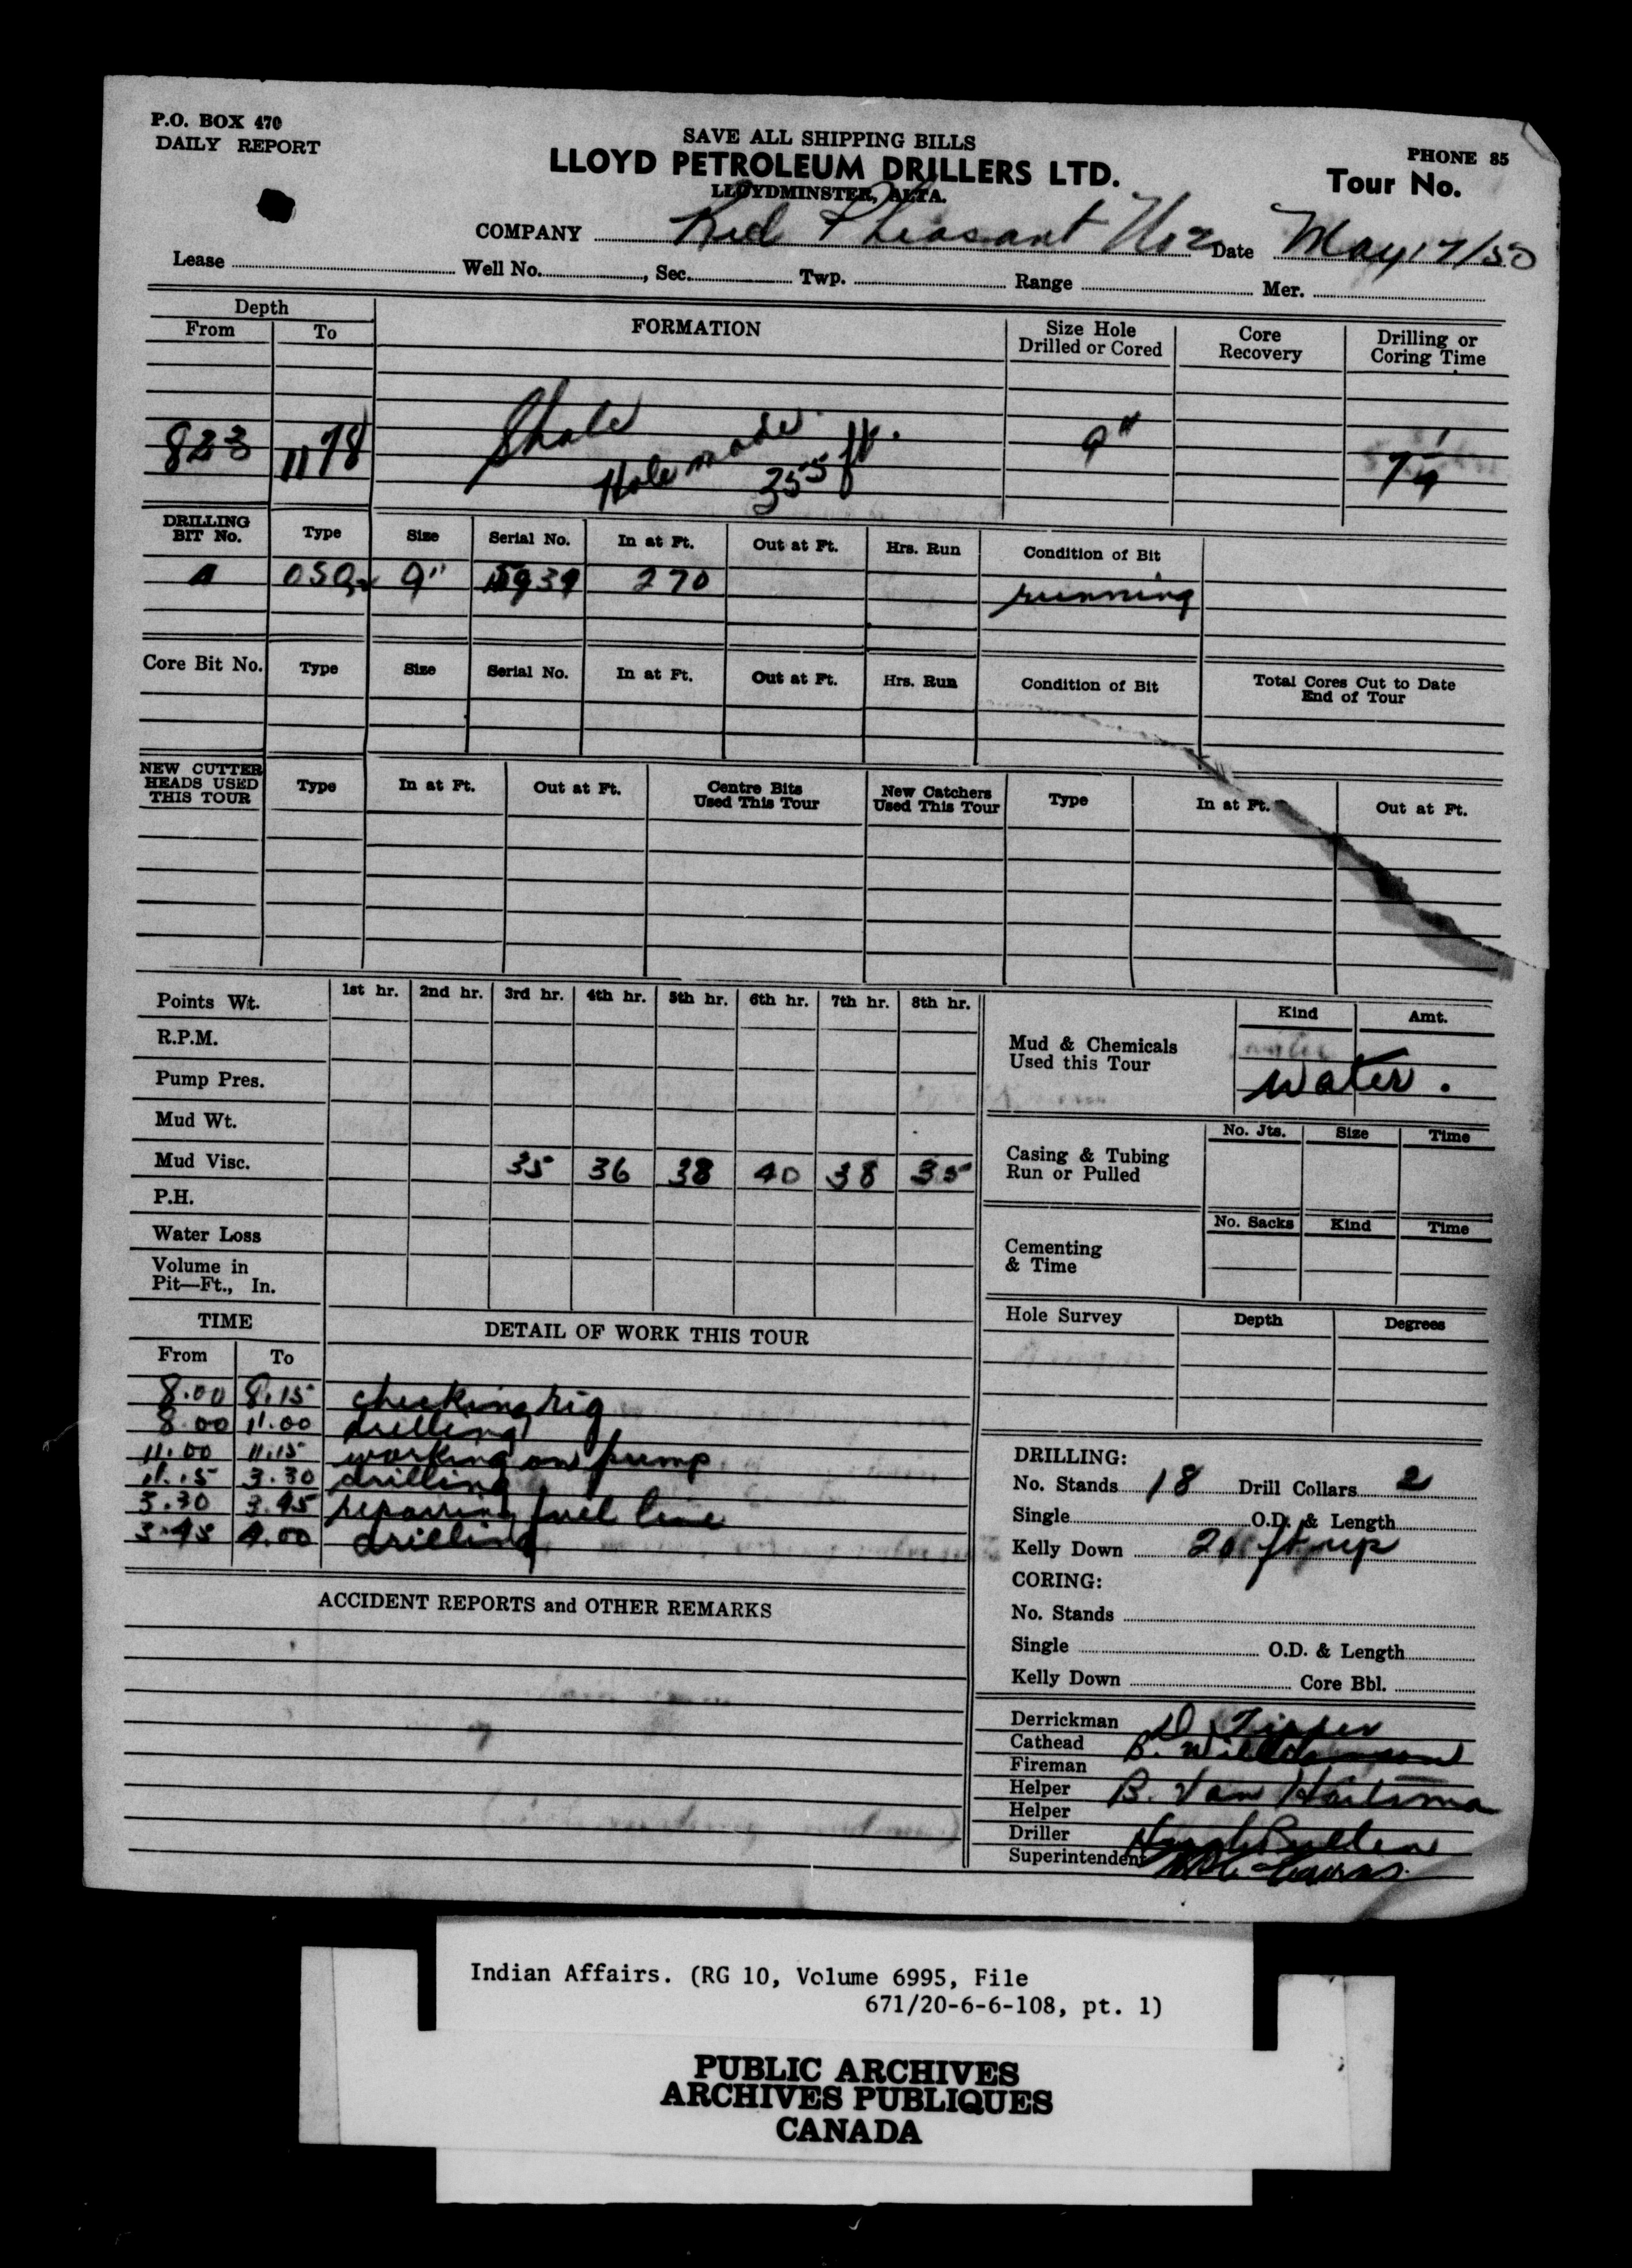 P.O. BOX 470
DAILY REPORT
SAVE ALL SHIPPING BILLS
LLOYD PETROLEUM DRILLERS LTD.
LLOYDMINSTER, ALTA.
PHONE 85
Tour No.
COMPANY Red Pheasant No 2 Date May 17/50
Lease Well No. , Sec. Twp. Range Mer.
Depth
From To FORMATION Size Hole Drilled or Cored Core Recovery Drilling or Coring Time
823 1178 Shale 9"
Hole made 355 ft.
DRILLING BIT No. Type Size Serial No. In at Ft. Out at Ft. Hrs. Run Condition of Bit
9" 270 running
Core Bit No. Type Size Serial No. In at Ft. Out at Ft. Hrs. Run Condition of Bit Total Cores Cut to Date End of Tour
NEW CUTTER HEADS USED THIS TOUR Type In at Ft. Out at Ft. Centre Bits Used This Tour New Catchers Used This Tour Type In at Ft. Out at Ft.
1st hr. 2nd hr. 3rd hr. 4th hr. 5th hr. 6th hr. 7th hr. 8th hr.
Points Wt.
R.P.M.
Pump Pres.
Mud Wt.
Mud Visc. 35 36 38 40 38 35
P.H.
Water Loss
Volume in
Pit—Ft., In.
Mud & Chemicals Used this Tour Kind Amt.
water.
Casing & Tubing Run or Pulled No. Jts. Size Time
Cementing & Time No. Sacks Kind Time
Hole Survey Depth Degrees
TIME
From To DETAIL OF WORK THIS TOUR
8.00 8.15 checking rig
8.00 11.00 drilling
11.00 11.15 working on pump
11.15 3.30 drilling
3.30 3.45 repairing fuel line
3.45 4.00 drilling
ACCIDENT REPORTS and OTHER REMARKS
DRILLING:
No. Stands 18 Drill Collars 2
Single O.D. & Length
Kelly Down ft up
CORING:
No. Stands
Single O.D. & Length
Kelly Down Core Bbl.
Derrickman D Tipper
Cathead B. Williamson
Fireman
Helper B. Van
Helper
Driller Hugh
Superintendent
Indian Affairs. (RG 10, Volume 6995, File
671/20-6-6-108, pt. 1)
PUBLIC ARCHIVES
ARCHIVES PUBLIQUES
CANADA